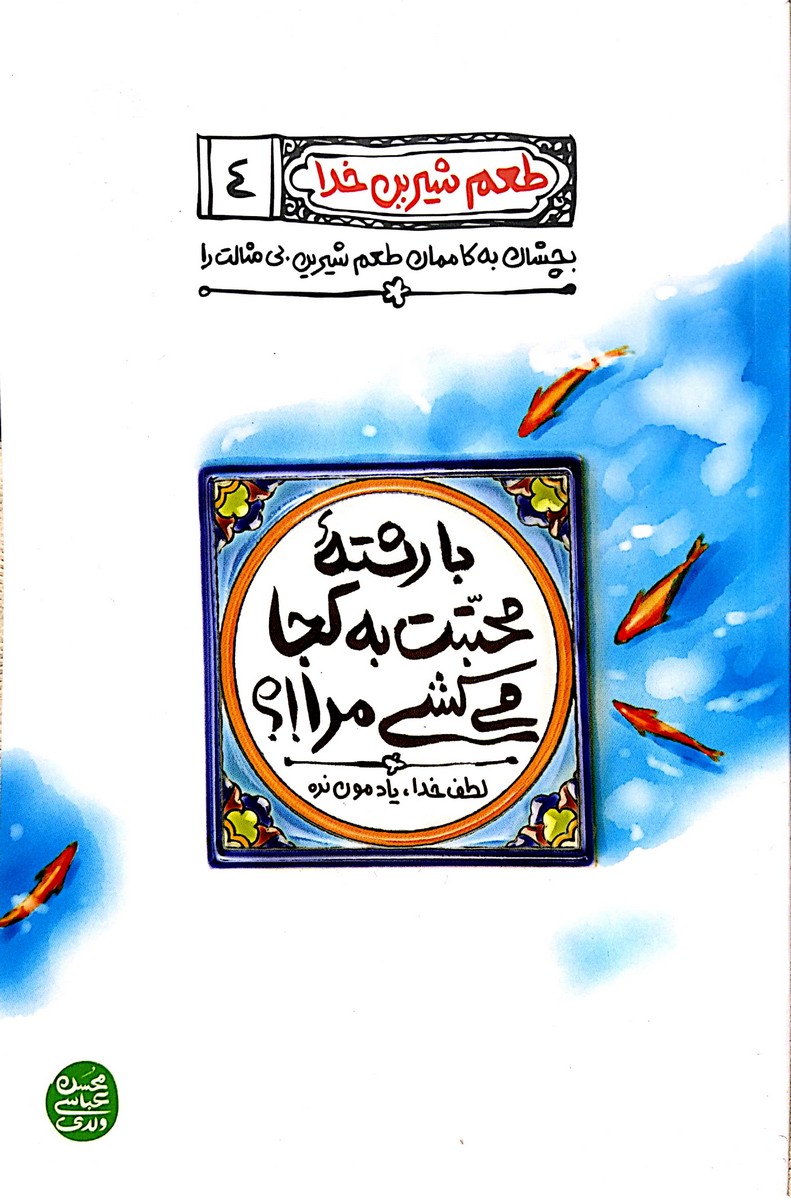 طعم شیرین خدا
٤
بچشان به کاممان طعم شیرین بی مثالت را
با رشتهٔ
محبّتت به کجا
می کشی مرا!؟
لطف خدا، یادمون نره
محسن
عباسی
ولدی